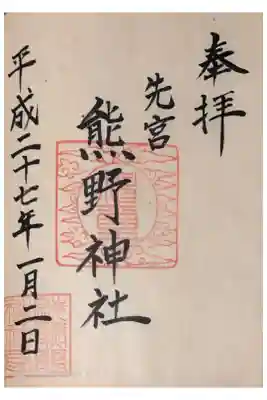 奉拝
先宮
熊野神社
平成二十七年一月二日